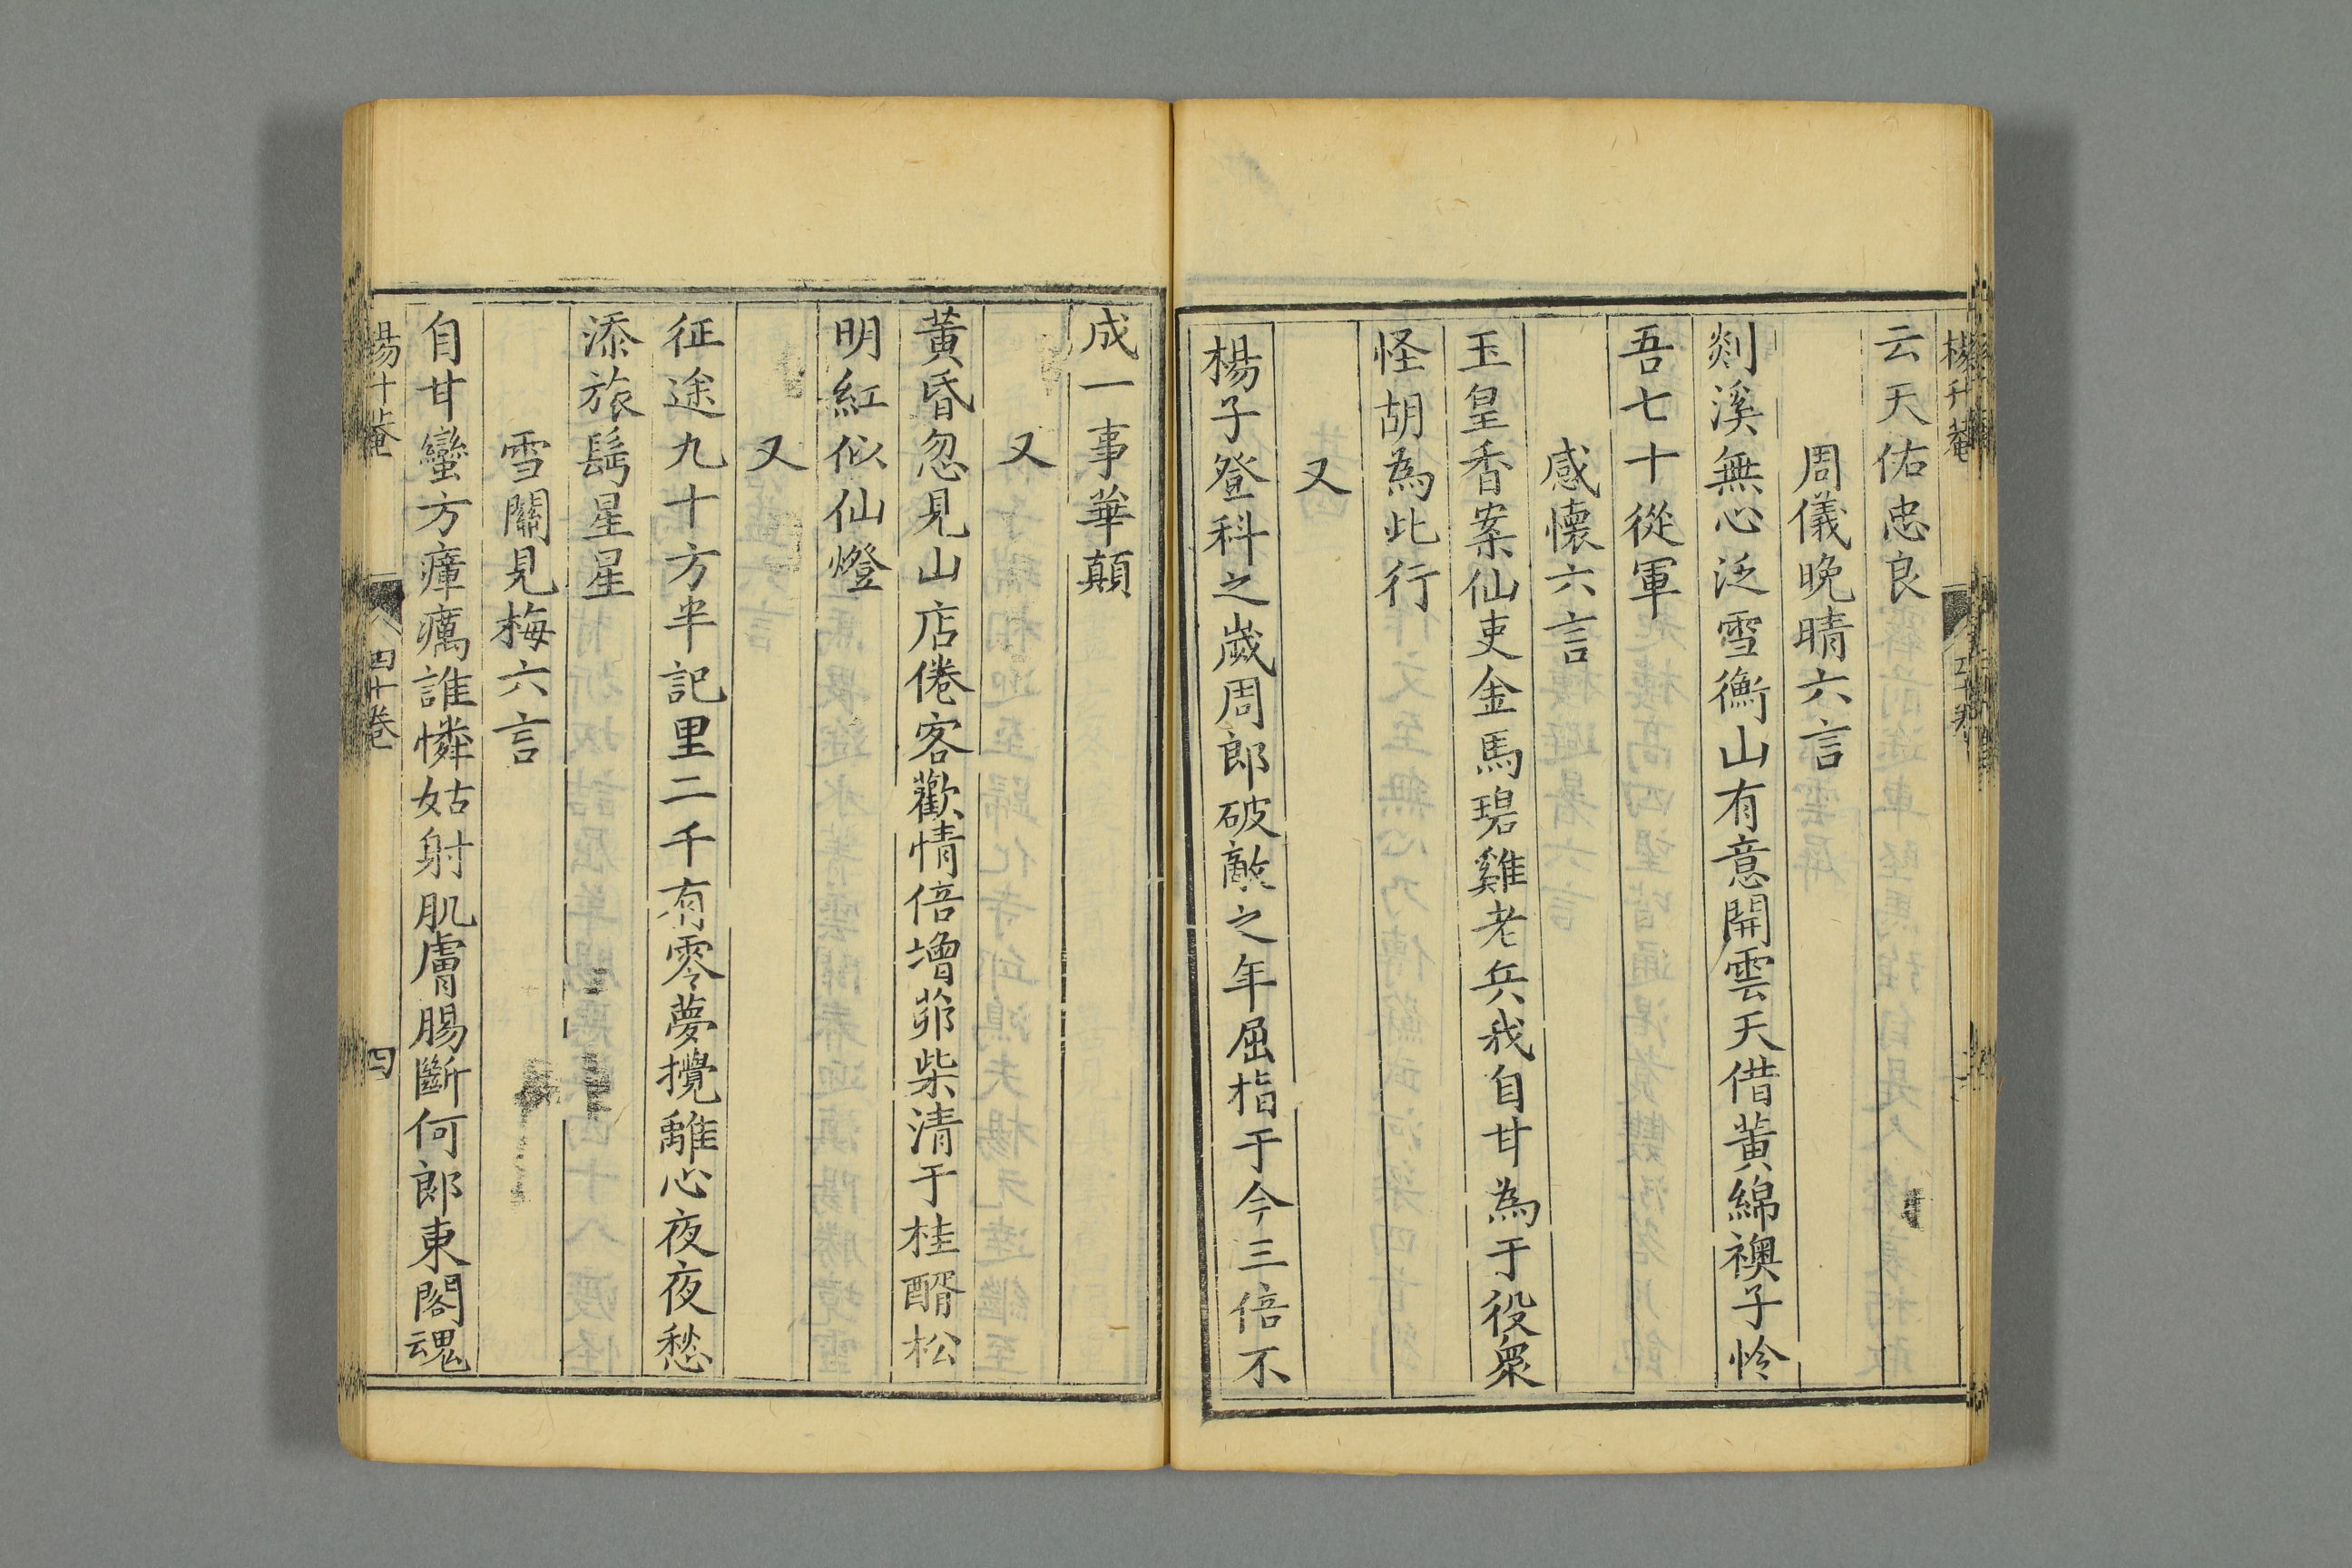 楊升菴
云天佑忠良
周儀晚晴六言
剡溪無心泛雪衡山有意開雲天借黃綿襖子怜
吾七十從軍
感懷六言
玉皇香案仙吏金馬碧雞老兵我自甘為于役衆
怪胡為此行
又
楊子登科之歲周郎破敵之年屈指于今三倍不
成一事華顛
又
黃昏忽見山店倦客歡情倍增茆柴清于桂醑松
明紅似仙燈
又
征途九十方半記里二千有零夢攪離心夜夜愁
添旅髩星星
雪關見梅六言
自甘蠻方瘴癘誰憐姑射肌膚腸斷何郎東閣魂
四十卷
四